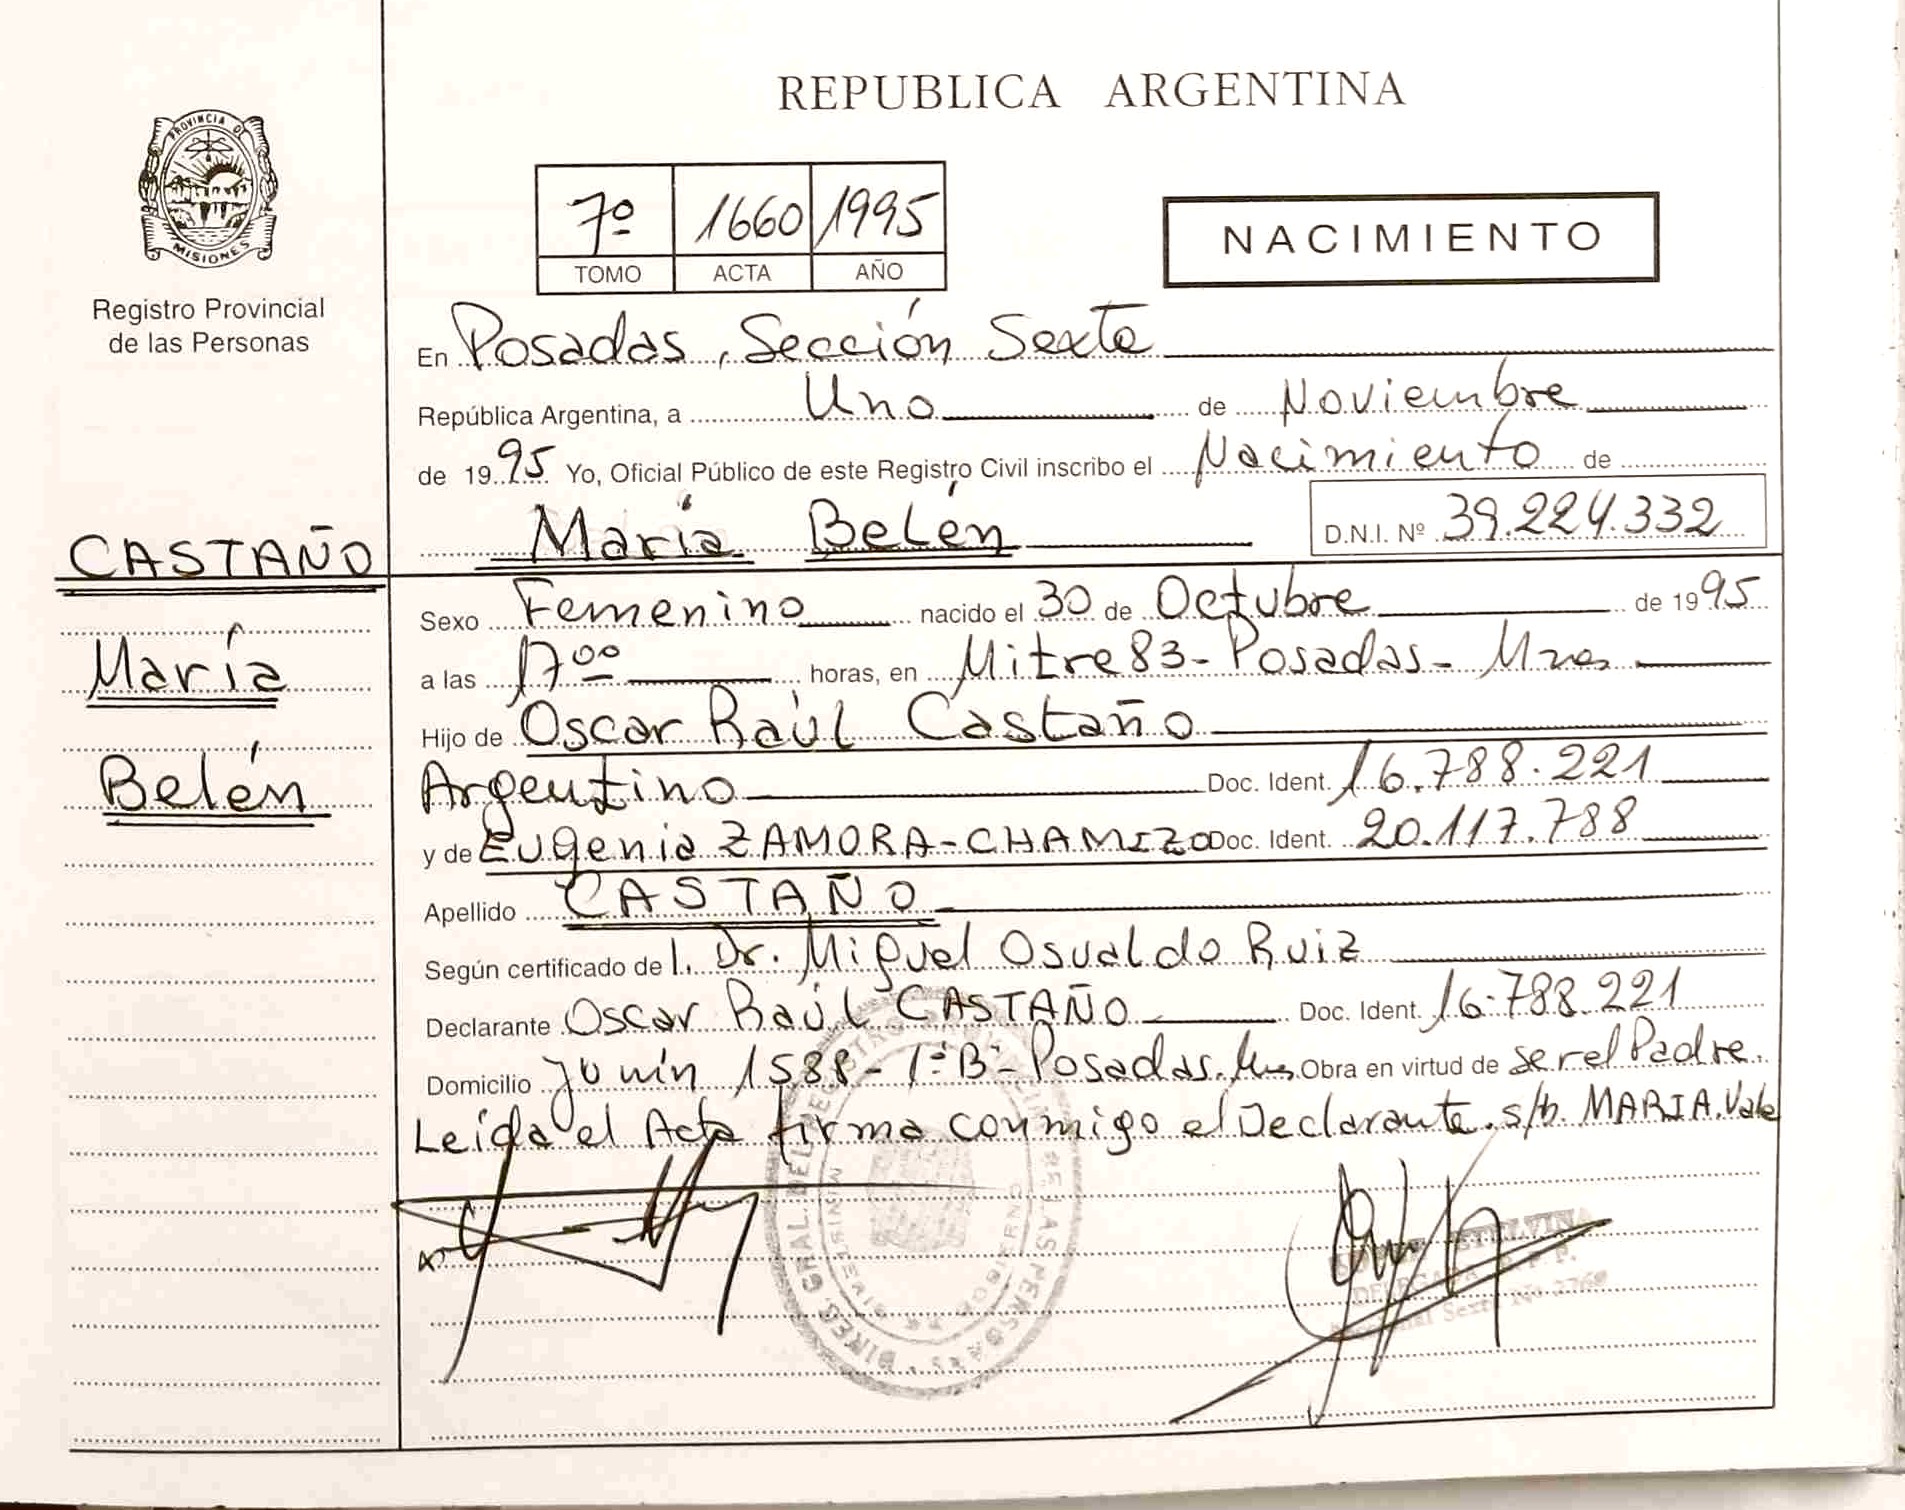 REPUBLICA ARGENTINA
PROVINCIA DE MISIONES
Registro Provincial
de las Personas
7º 1660 1995
TOMO ACTA AÑO
NACIMIENTO
En Posadas, Sección Sexta
República Argentina, a Uno de Noviembre
de 1995 Yo, Oficial Público de este Registro Civil inscribo el Nacimiento de
María Belén D.N.I. Nº 39.224.332
CASTAÑO
María
Belén
Sexo Femenino nacido el 30 de Octubre de 1995
a las 17⁰⁰ horas, en Mitre 83- Posadas- Mnes
Hijo de Oscar Raúl Castaño
Argentino Doc. Ident. 16.788.221
y de Eugenia ZAMORA-CHAMIZO Doc. Ident. 20.117.788
Apellido CASTAÑO
Según certificado de l. Dr. Miguel Osvaldo Ruiz
Declarante Oscar Raúl CASTAÑO Doc. Ident. 16.788.221
Domicilio Junín 1588- 1º B- Posadas. Obra en virtud de ser el Padre.
Leída el Acta firma conmigo el Declarante. s/b. MARIA. Vale